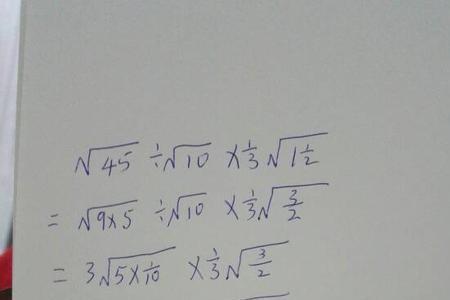 √45 ÷ √10 × 1/3 √1 1/2
= √9×5 ÷ √10 × 1/3 √3/2
= 3√5×1/10 × 1/3 √3/2